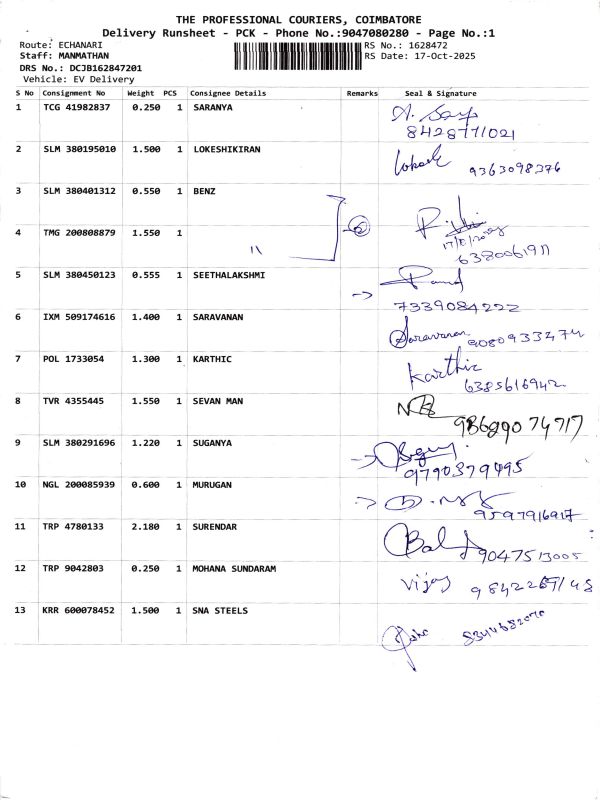 THE PROFESSIONAL COURIERS, COIMBATORE
Delivery Runsheet - PCK - Phone No.:9047080280 - Page No.:1
Route: ECHANARI RS No.: 1628472
Staff: MANMATHAN RS Date: 17-Oct-2025
DRS No.: DCJB162847201
Vehicle: EV Delivery
S No Consignment No Weight PCS Consignee Details Remarks Seal & Signature
1 TCG 41982837 0.250 1 SARANYA
8428771021
2 SLM 380195010 1.500 1 LOKESHIKIRAN
9363098376
3 SLM 380401312 0.550 1 BENZ
4 TMG 200808879 1.550 1 11 2
17/10/2025
6380061911
5 SLM 380450123 0.555 1 SEETHALAKSHMI
7339084222
6 IXM 509174616 1.400 1 SARAVANAN Saravanan
9080933474
7 POL 1733054 1.300 1 KARTHIC Karthic
6385616942
8 TVR 4355445 1.550 1 SEVAN MAN
9 SLM 380291696 1.220 1 SUGANYA
9790379495
10 NGL 200085939 0.600 1 MURUGAN
9597916917
11 TRP 4780133 2.180 1 SURENDAR
9047513005
12 TRP 9042803 0.250 1 MOHANA SUNDARAM Vijay
13 KRR 600078452 1.500 1 SNA STEELS
8344682070